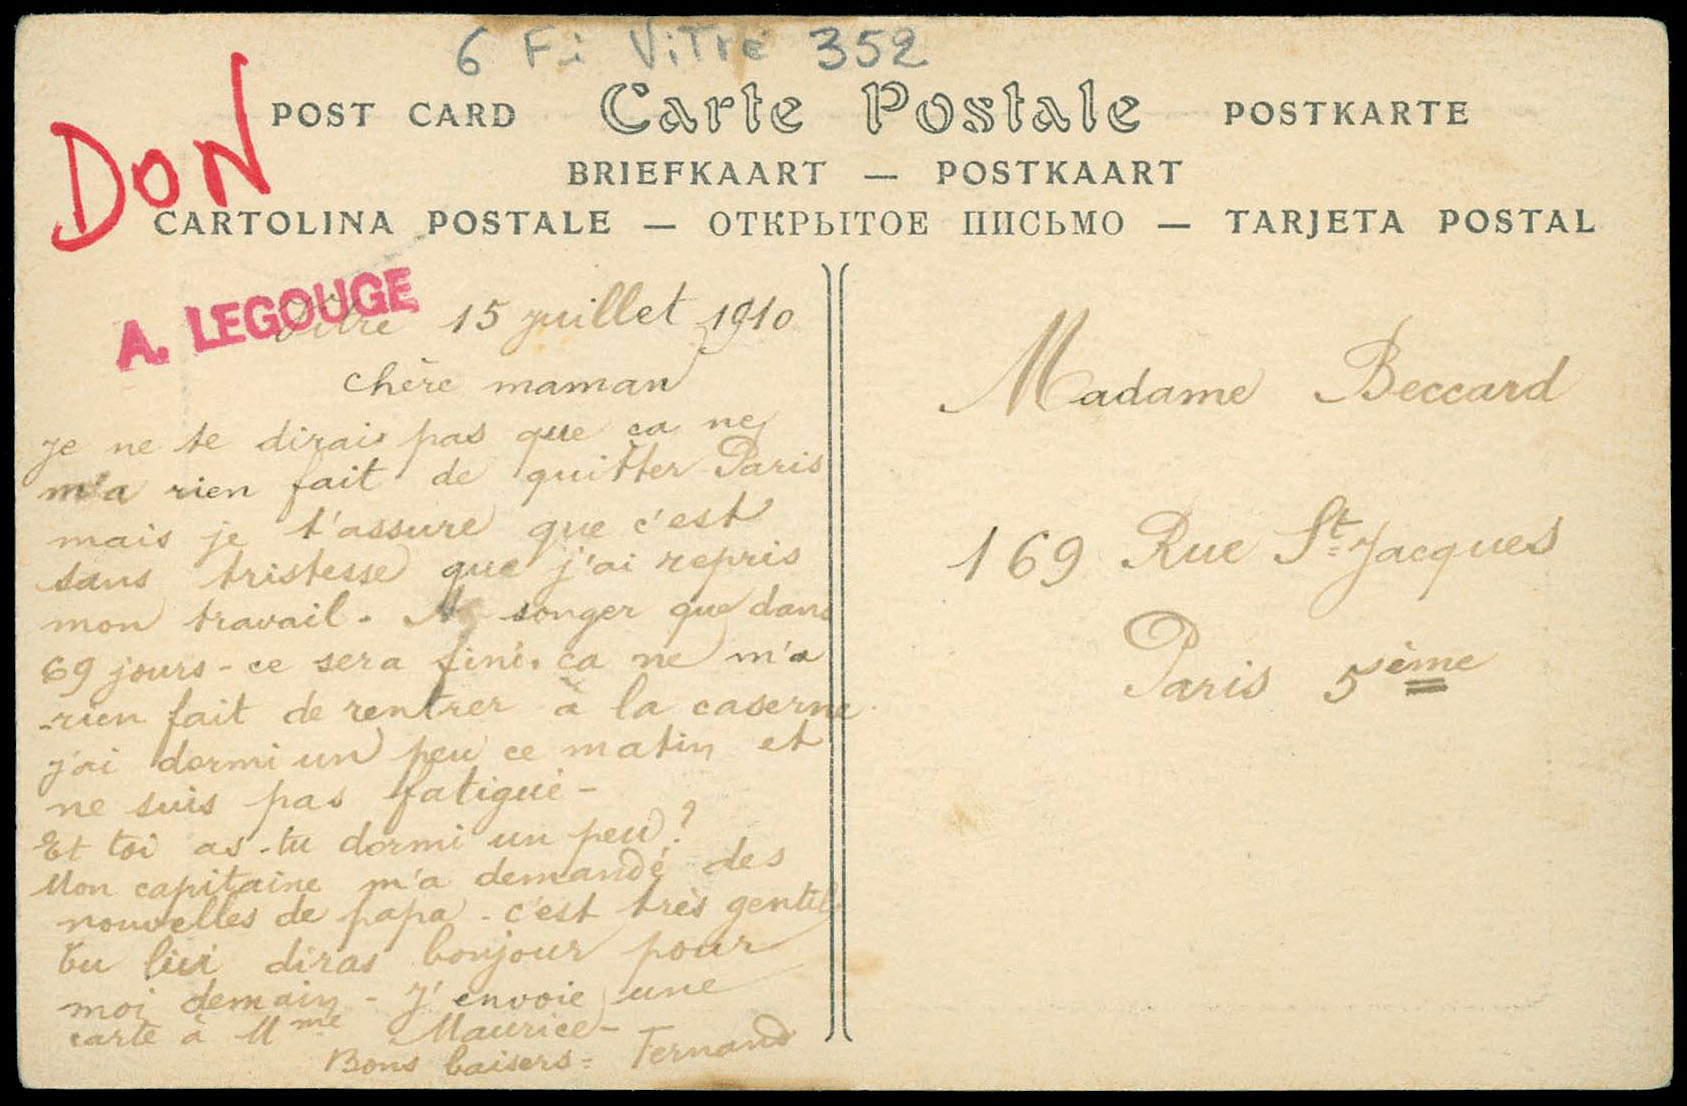 6 Fi Vitré 352
DON
POST CARD Carte Postale POSTKARTE
BRIEFKAART — POSTKAART
CARTOLINA POSTALE — ОТКРЫТОЕ ПИСЬМО — TARJETA POSTAL
A. LEGOUGE
Vitré 15 juillet 1910
Chère maman
Je ne te dirais pas que ça ne
m'a rien fait de quitter Paris
mais je t'assure que c'est
sans tristesse que j'ai repris
mon travail. A songer que dans
69 jours - ce sera fini. ça ne m'a
rien fait de rentrer à la caserne
j'ai dormi un peu ce matin et
ne suis pas fatigué -
Et toi as-tu dormi un peu ?
Mon capitaine m'a demandé des
nouvelles de papa - c'est très gentil
tu lui diras bonjour pour
moi demain - J'envoie une
carte à Mme Maurice -
Bons baisers = Fernand
Madame Beccard
169 Rue St Jacques
Paris 5ème